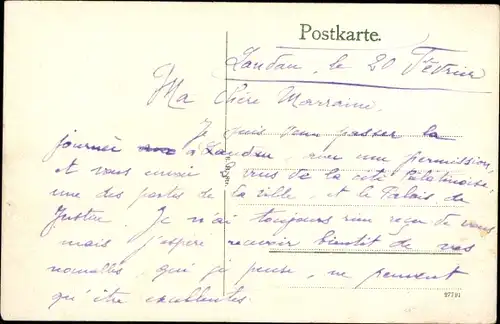 Postkarte.
Landau, le 20 Février
Ma chère Marraine,
Je suis venu passer la
journée à Landau, avec une permission,
et vous envoie vues de la cité Palatinoise,
une des portes de la ville, et le Palais de
Justice. Je n'ai toujours rien reçu de vous
mais j'espère recevoir bientôt de vos
nouvelles qui je pense, ne peuvent
qu'être excellentes.